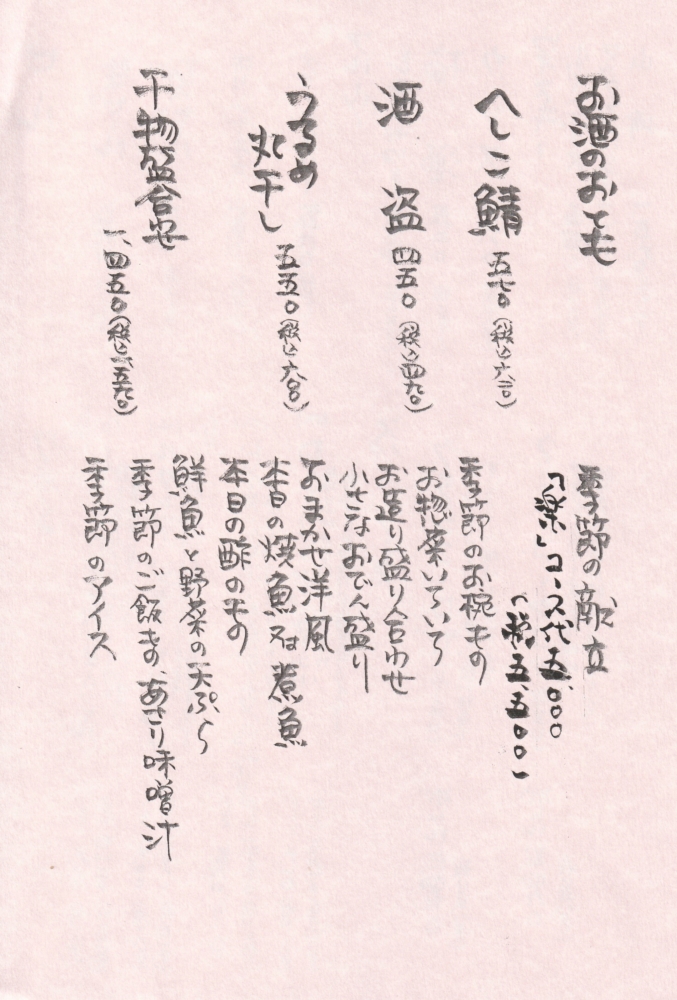 お酒のおとも
へしこ鯖 五七〇(税込六二〇)
酒盗 四五〇(税込四九〇)
うるめ
丸干し 五五〇(税込六〇〇)
干物盛合せ
一、四五〇(税込一、五九〇)
季節の献立
「楽」コース代五、〇〇〇
(税五、五〇〇)
季節のお椀もの
お惣菜いろいろ
お造り盛り合わせ
小さなおでん盛り
おまかせ洋風
本日の焼魚又は煮魚
本日の酢のもの
鮮魚と野菜の天ぷら
季節のご飯もの、あさり味噌汁
季節のアイス